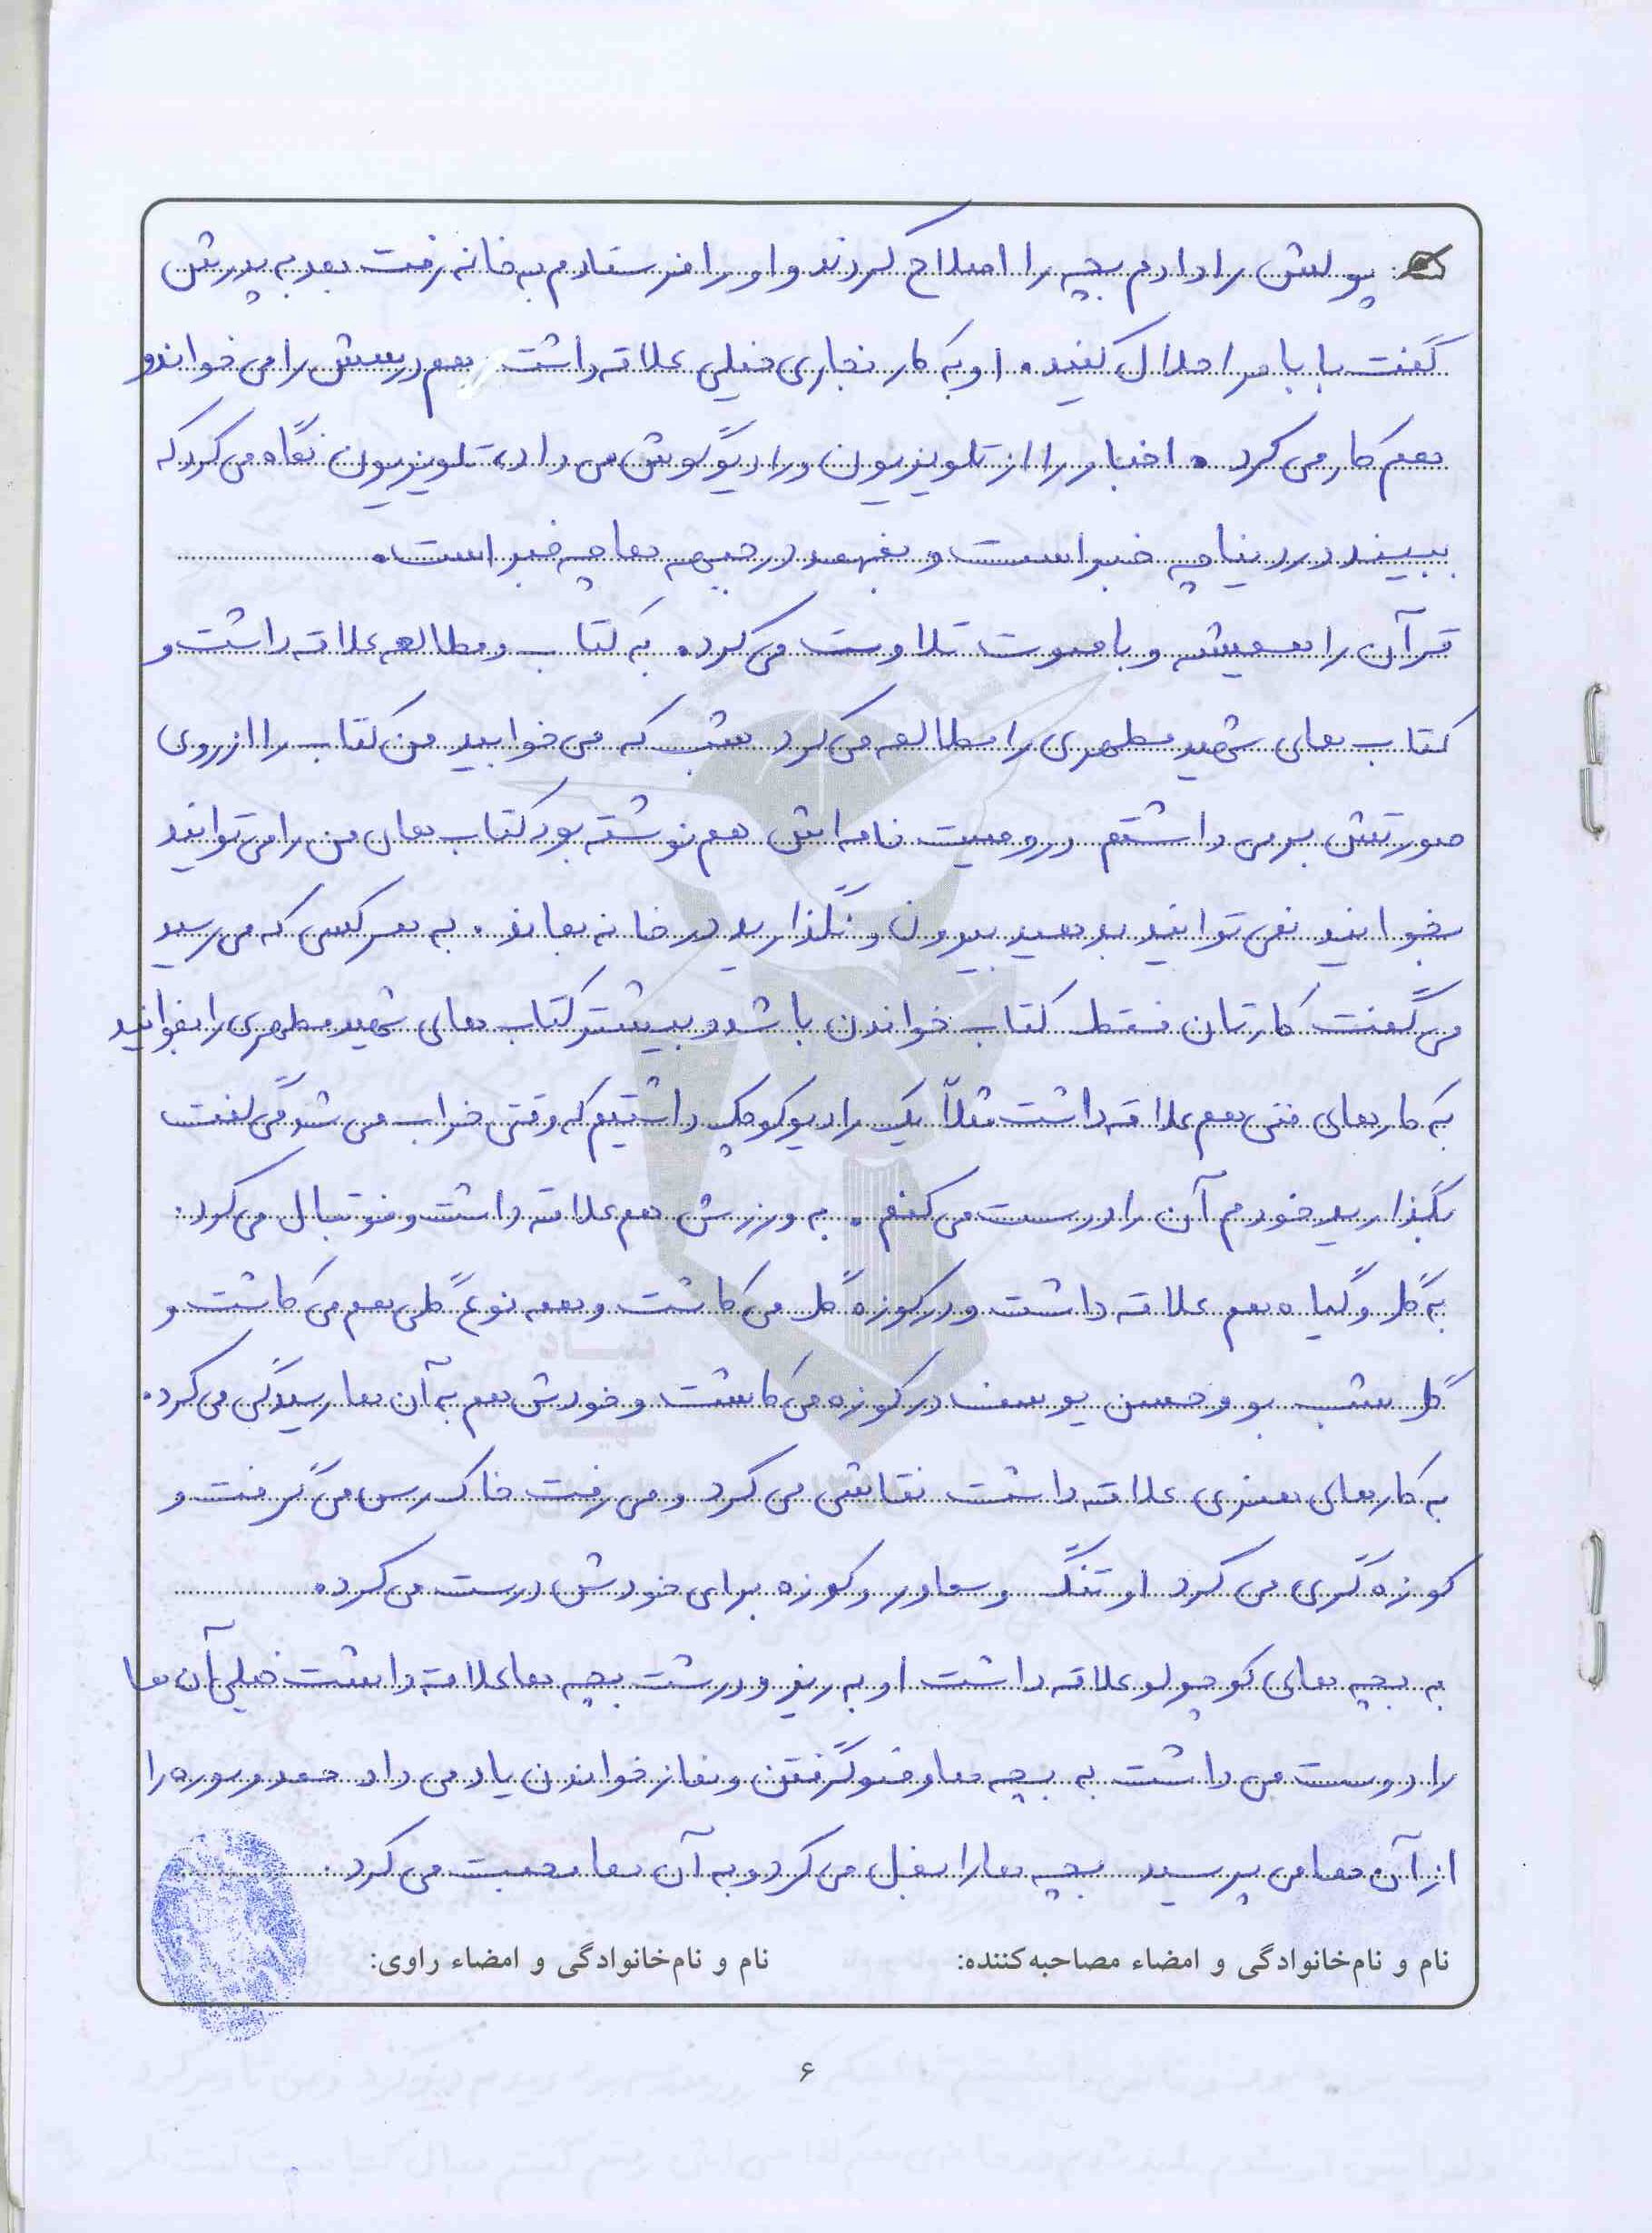 پولش را دادم بچه را اصلاح کردند و او را فرستادم به خانه رفت بعد به پدرش
گفت بابا مرا حلال کنید. او به کار نجاری خیلی علاقه داشت هم درسش را می خواند و
هم کار می کرد. اخبار را از تلویزیون و رادیو گوش می داد، تلویزیون نگاه می کرد که
ببیند در دنیا چه خبر است و بفهمد در جبهه ها چه خبر است.
قرآن را همیشه و با صوت تلاوت می کرد. به کتاب و مطالعه علاقه داشت و
کتاب های شهید مطهری را مطالعه می کرد شب که می خوابید من کتاب را از روی
صورتش برمی داشتم در وصیت نامه اش هم نوشته بود کتاب های من را می توانید
بخوانید نمی توانید بدهید بیرون و نگذارید در خانه بماند. به هر کسی که می رسید
می گفت کارتان فقط کتاب خواندن باشد و بیشتر کتاب های شهید مطهری را بخوانید
به کارهای فنی هم علاقه داشت مثلاً یک رادیو کوچک داشتیم که وقتی خراب می شد می گفت
بگذارید خودم آن را درست می کنم. به ورزش هم علاقه داشت و فوتبال می کرد.
به گل و گیاه هم علاقه داشت و در کوزه گل می کاشت و همه نوع گلی هم می کاشت و
گل شب بو و حسن یوسف در کوزه می کاشت و خودش هم به آن ها رسیدگی می کرد.
به کارهای هنری علاقه داشت نقاشی می کرد و می رفت خاک رس می گرفت و
کوزه گری می کرد او تنگ و سماور و کوزه برای خودش درست می کرد.
به بچه های کوچولو علاقه داشت او به ریز و درشت بچه ها علاقه داشت خیلی آن ها
را دوست می داشت به بچه ها وضو گرفتن و نماز خواندن یاد می داد حمد و سوره را
از آن ها می پرسید بچه ها را بغل می کرد و به آن ها محبت می کرد.
نام و نام‌خانوادگی و امضاء مصاحبه‌کننده: نام و نام‌خانوادگی و امضاء راوی:
۶